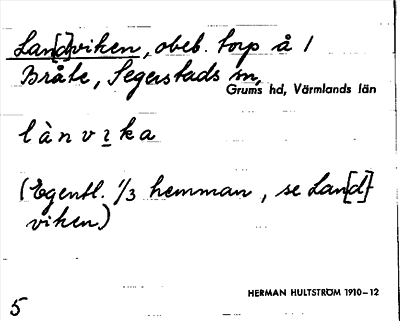 Lan[d]viken, obeb. torp å 1
Bråte, Segerstads m,
Grums hd, Värmlands län
lànvịka
(Egentl. 1/3 hemman, se Lan[d]
viken)
HERMAN HULTSTRÖM 1910-12
5